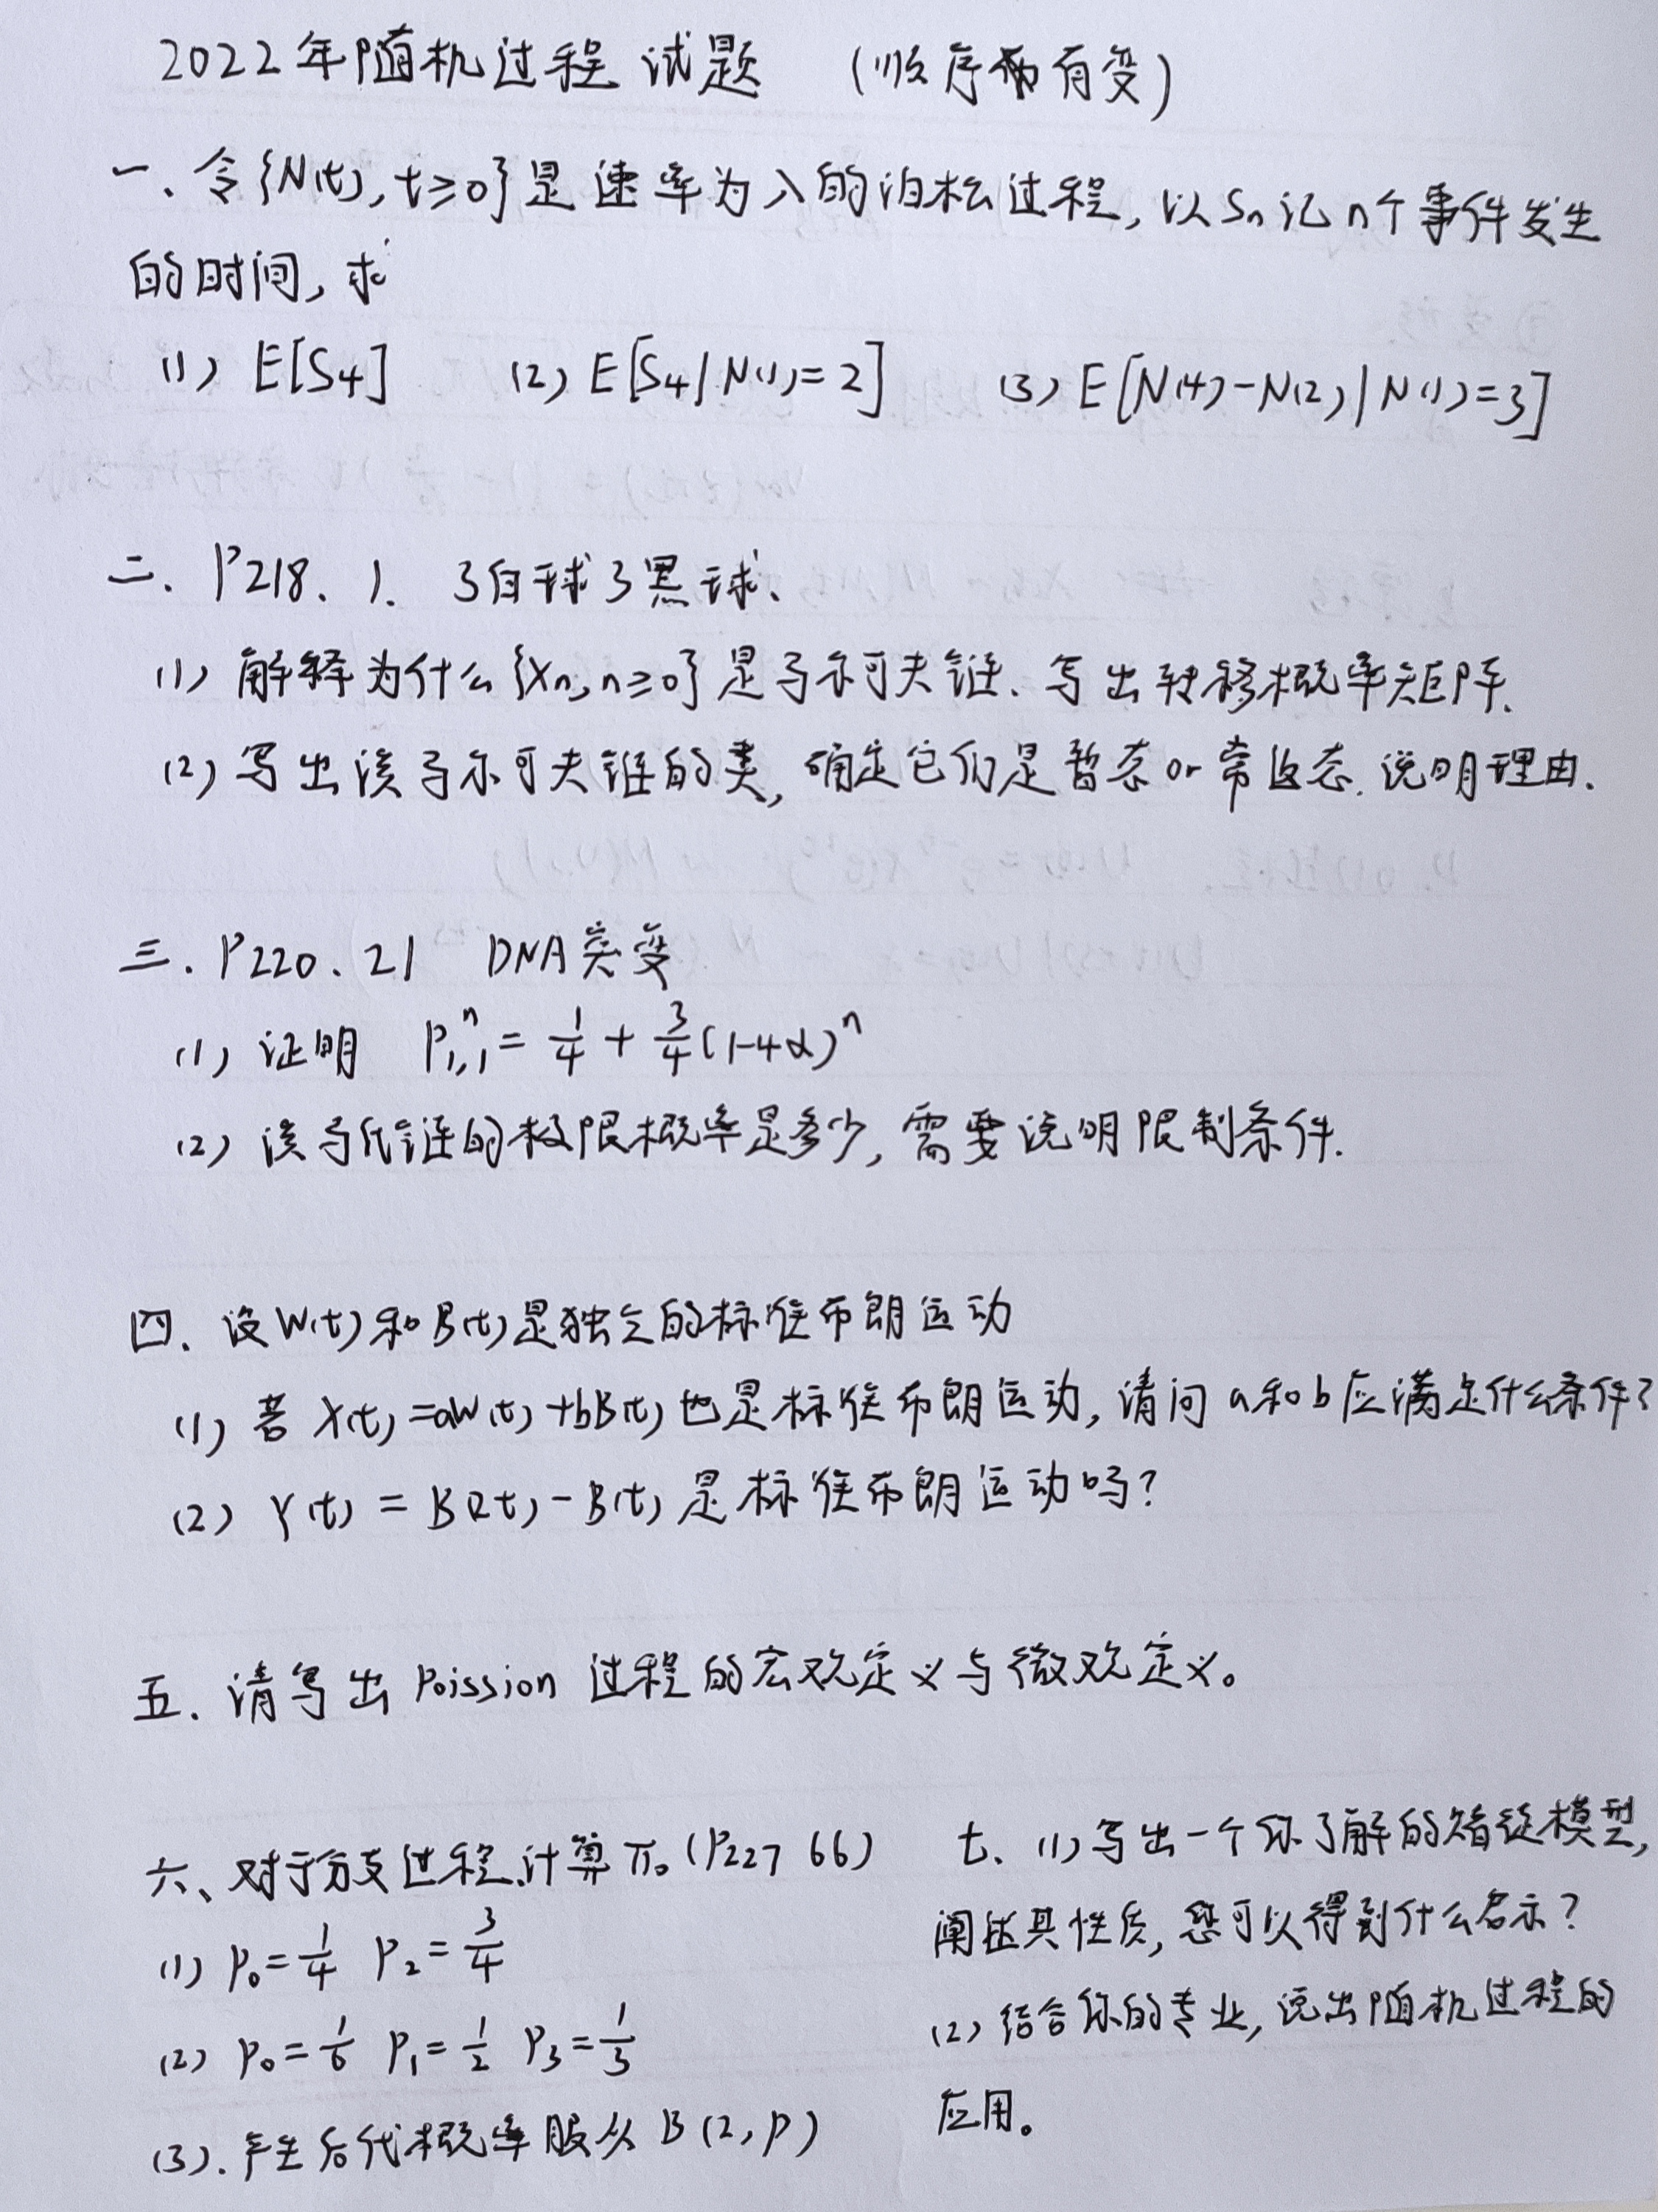 2022年随机过程 试题 (顺序有变)
一、令{N(t), t≥0}是速率为λ的泊松过程, 以Sn记n个事件发生
的时间, 求
(1) E[S4] (2) E[S4|N(1)=2] (3) E[N(4)-N(2)|N(1)=3]
二. P218. 1. 3白球3黑球.
(1) 解释为什么{Xn, n≥0}是马尔可夫链. 写出转移概率矩阵.
(2) 写出该马尔可夫链的类, 确定它们是暂态or常返态. 说明理由.
三. P220. 21 DNA突变
(1) 证明 P₁,₁ⁿ = 1/4 + 3/4(1-4α)ⁿ
(2) 该马氏链的极限概率是多少, 需要说明限制条件.
四. 设W(t)和B(t)是独立的标准布朗运动
(1) 若X(t)=aW(t)+bB(t)也是标准布朗运动, 请问a和b应满足什么条件?
(2) Y(t) = B(2t)-B(t)是标准布朗运动吗?
五. 请写出Poission过程的宏观定义与微观定义。
六、对于分支过程.计算π₀ (P227 66)
(1) P₀=1/4 P₂=3/4
(2) P₀=1/6 P₁=1/2 P₃=1/3
(3). 产生后代概率服从B(2,p)
七、(1)写出一个你了解的赌徒模型,
阐述其性质, 您可以得到什么启示?
(2) 结合你的专业, 说出随机过程的
应用。